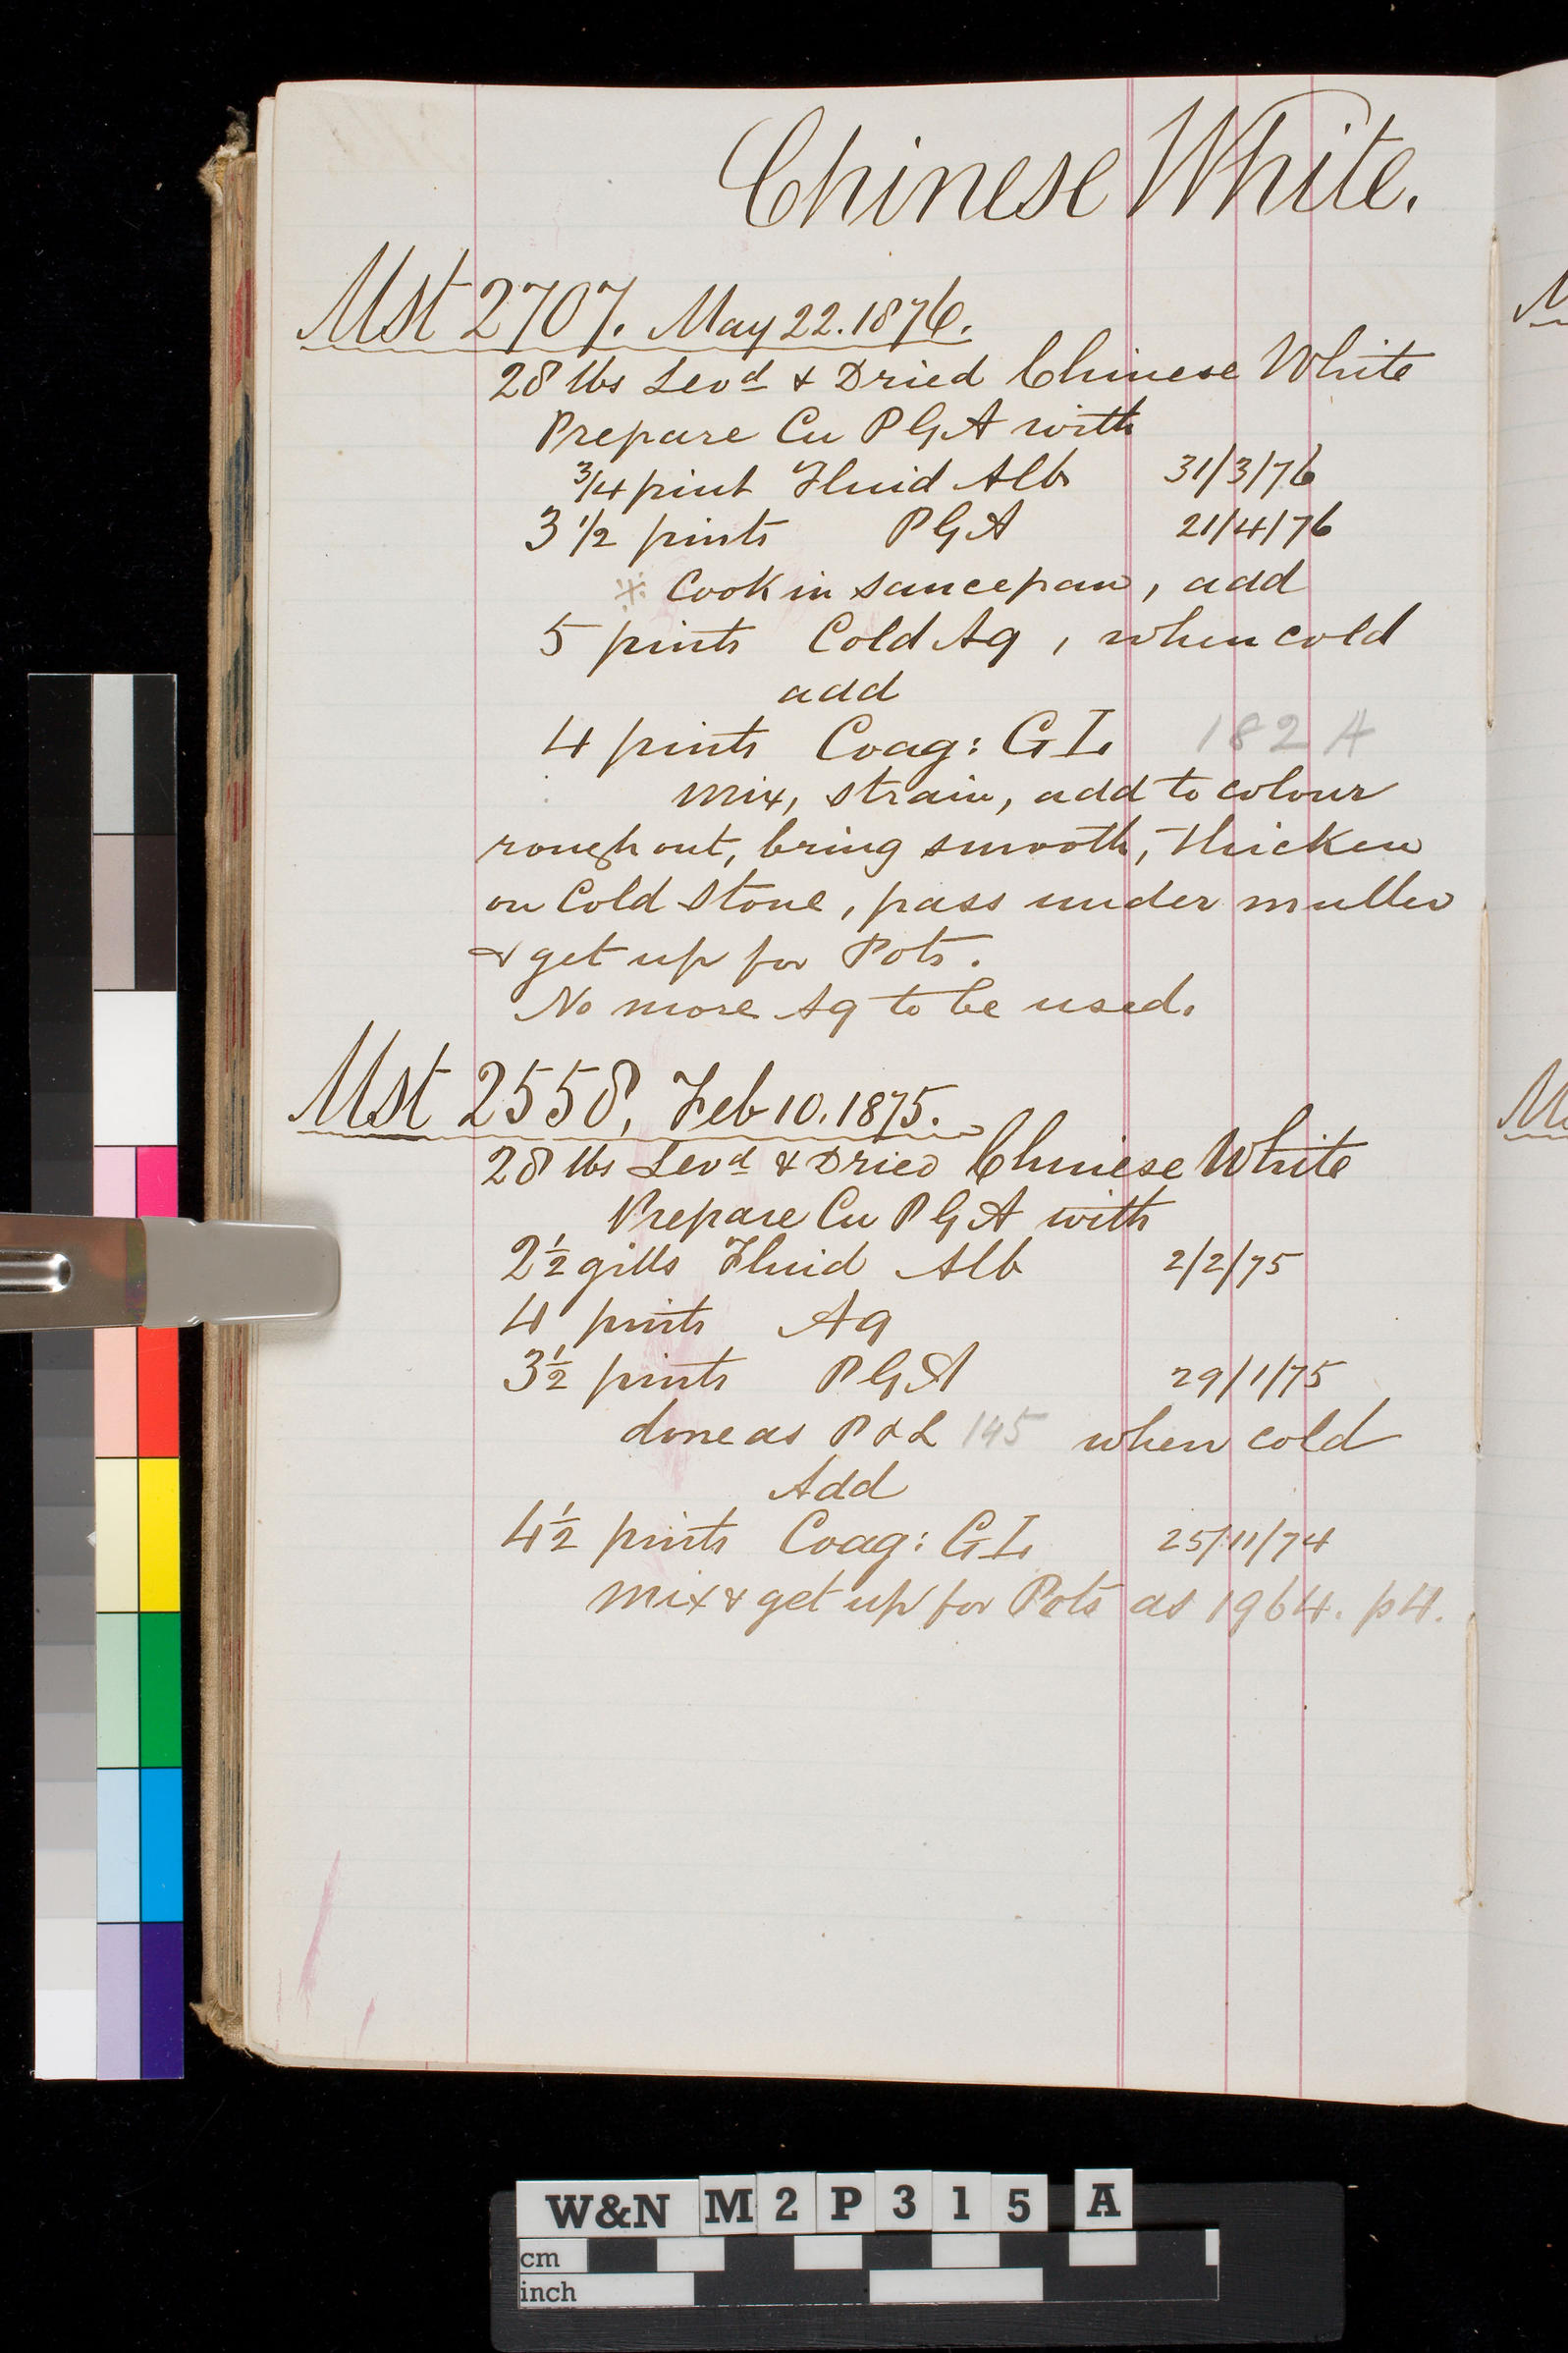 Chinese White.
Mst 2707. May 22. 1876.
28 lbs Levd & Dried Chinese White
Prepare Cu PGA with
3/4 pint Fluid Alb 31/3/76
3 1/2 pints PGA 21/4/76
※ Cook in saucepan, add
5 pints Cold Aq, when cold
add
4 pints Coag: GL 182 A
mix, strain, add to colour
rough out, bring smooth, thicken
on Cold Stone, pass under muller
& get up for Pots.
No more Aq to be used.
Mst 2558, Feb 10. 1875.
28 lbs Levd & Dried Chinese White
Prepare Cu PGA with
2 1/2 gills Fluid Alb 2/2/75
4 pints Aq
3 1/2 pints PGA 29/1/75
done as P & L 145 when cold
Add
4 1/2 pints Coag: GL 25/11/74
mix & get up for Pots as 1964. p4.
W&N M2P315 A
cm
inch